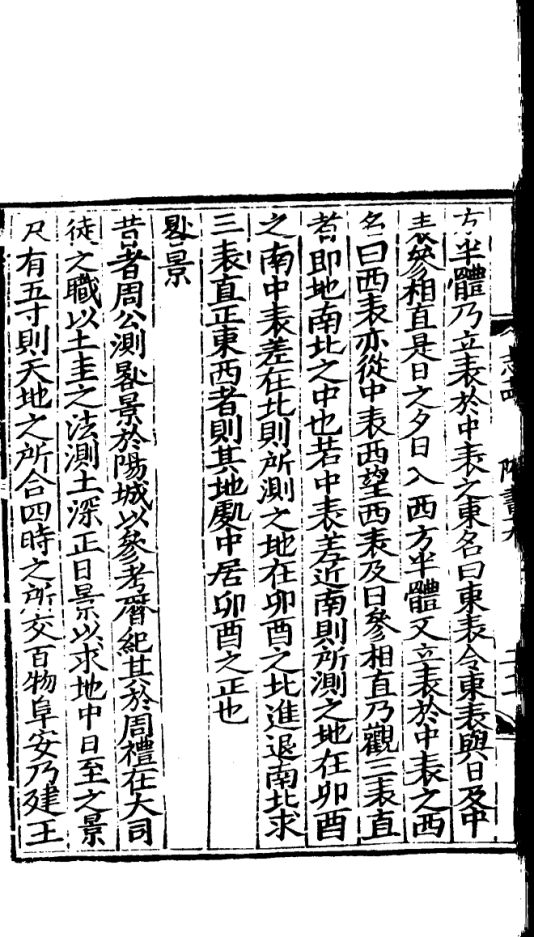 方半體乃立表於中表之東名曰東表令東表與日及中
表參相直是日之夕日入西方半體又立表於中表之西
名曰西表亦從中表西望西表及日參相直乃觀三表直
者即地南北之中也若中表差近南則所測之地在卯酉
之南中表差在北則所測之地在卯酉之北進退南北求
三表直正東西者則其地處中居卯酉之正也
晷景
昔者周公測晷景於陽城以參考曆紀其於周禮在大司
徒之職以土圭之法測土深正日景以求地中日至之景
尺有五寸則天地之所合四時之所交百物阜安乃建王